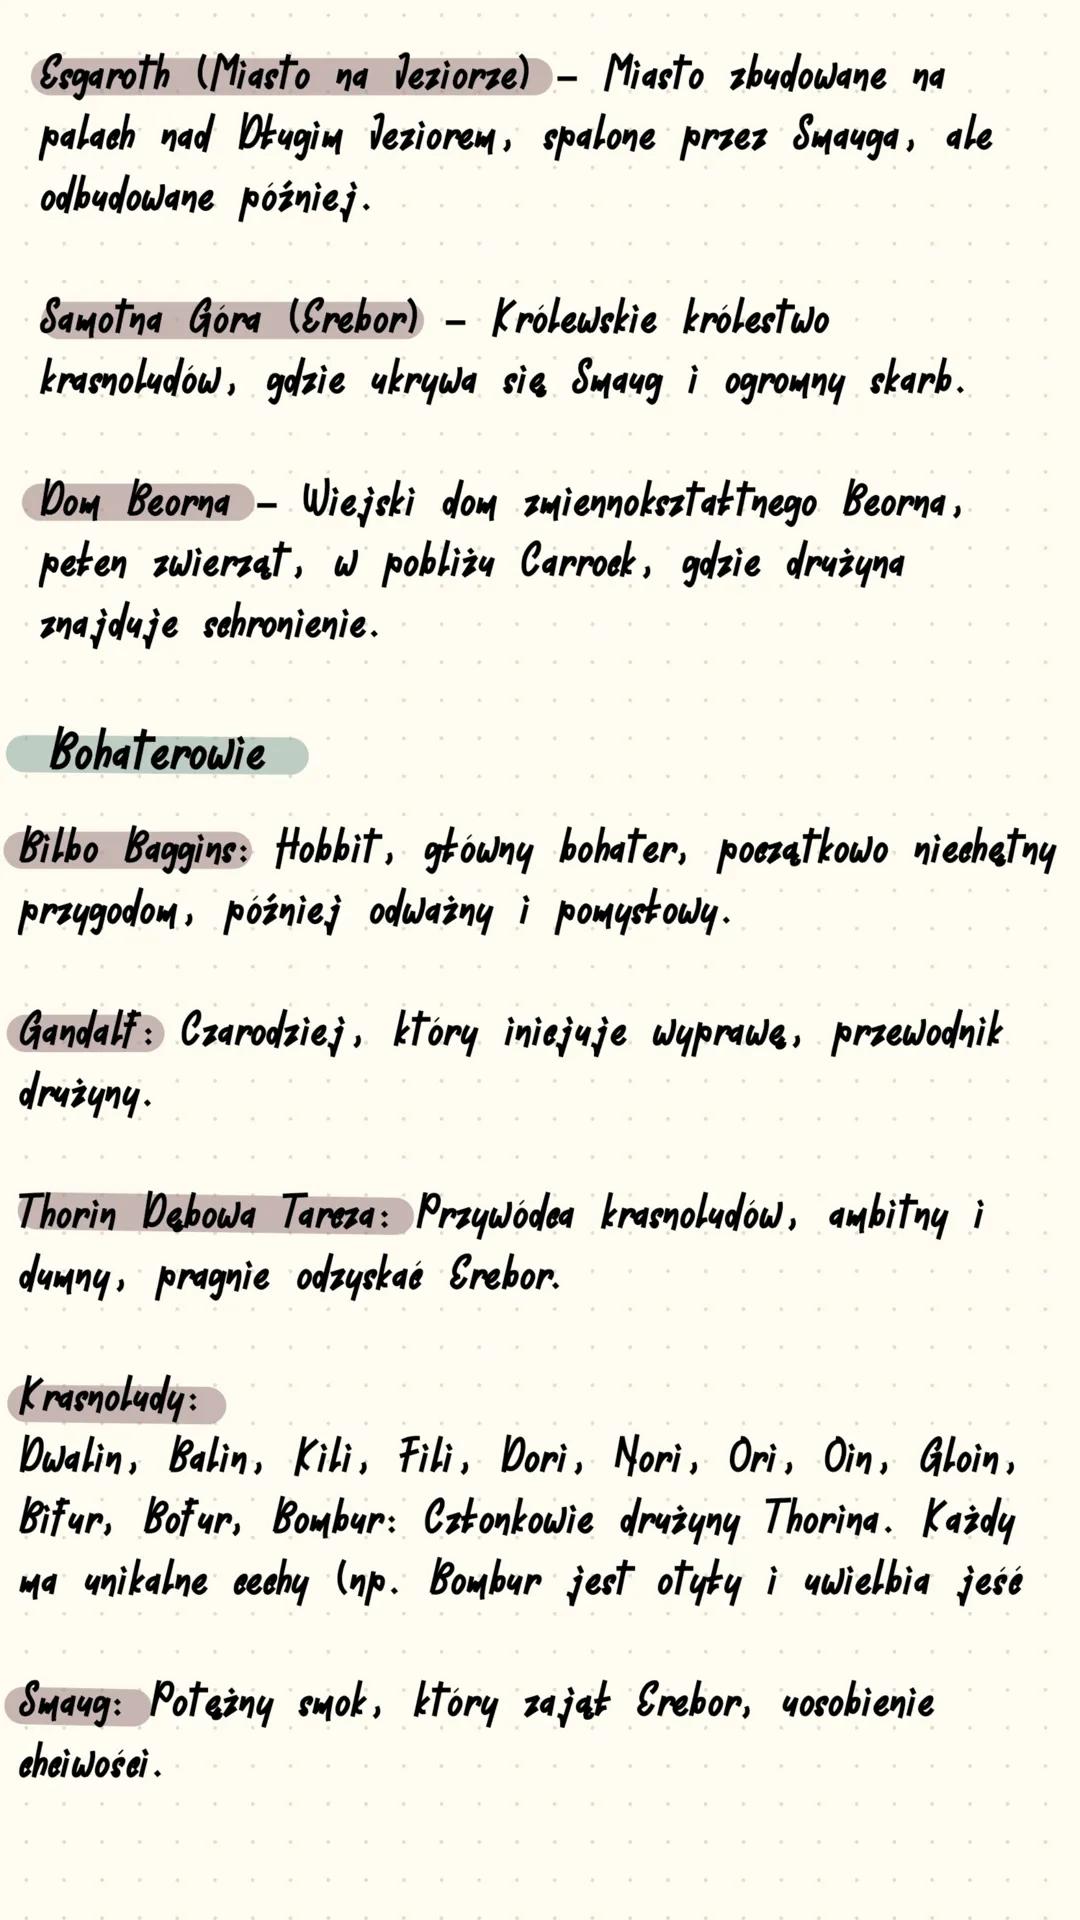 Esgaroth (Miasto na Jeziorze) – Miasto zbudowane na
palach nad Długim Jeziorem, spalone przez Smauga, ale
odbudowane później.
Samotna Góra (Erebor) – Królewskie królestwo
krasnoludów, gdzie ukrywa się Smaug i ogromny skarb.
Dom Beorna – Wiejski dom zmiennokształtnego Beorna,
pełen zwierząt, w pobliżu Carrock, gdzie drużyna
znajduje schronienie.
Bohaterowie
Bilbo Baggins: Hobbit, główny bohater, początkowo niechętny
przygodom, później odważny i pomysłowy.
Gandalf: Czarodziej, który inicjuje wyprawę, przewodnik
drużyny.
Thorin Dębowa Tarcza: Przywódca krasnoludów, ambitny i
dumny, pragnie odzyskać Erebor.
Krasnoludy:
Dwalin, Balin, Kili, Fili, Dori, Nori, Ori, Oin, Gloin,
Bifur, Bofur, Bombur: Członkowie drużyny Thorina. Każdy
ma unikalne cechy (np. Bombur jest otyły i uwielbia jeść
Smaug: Potężny smok, który zajął Erebor, uosobienie
chciwości.